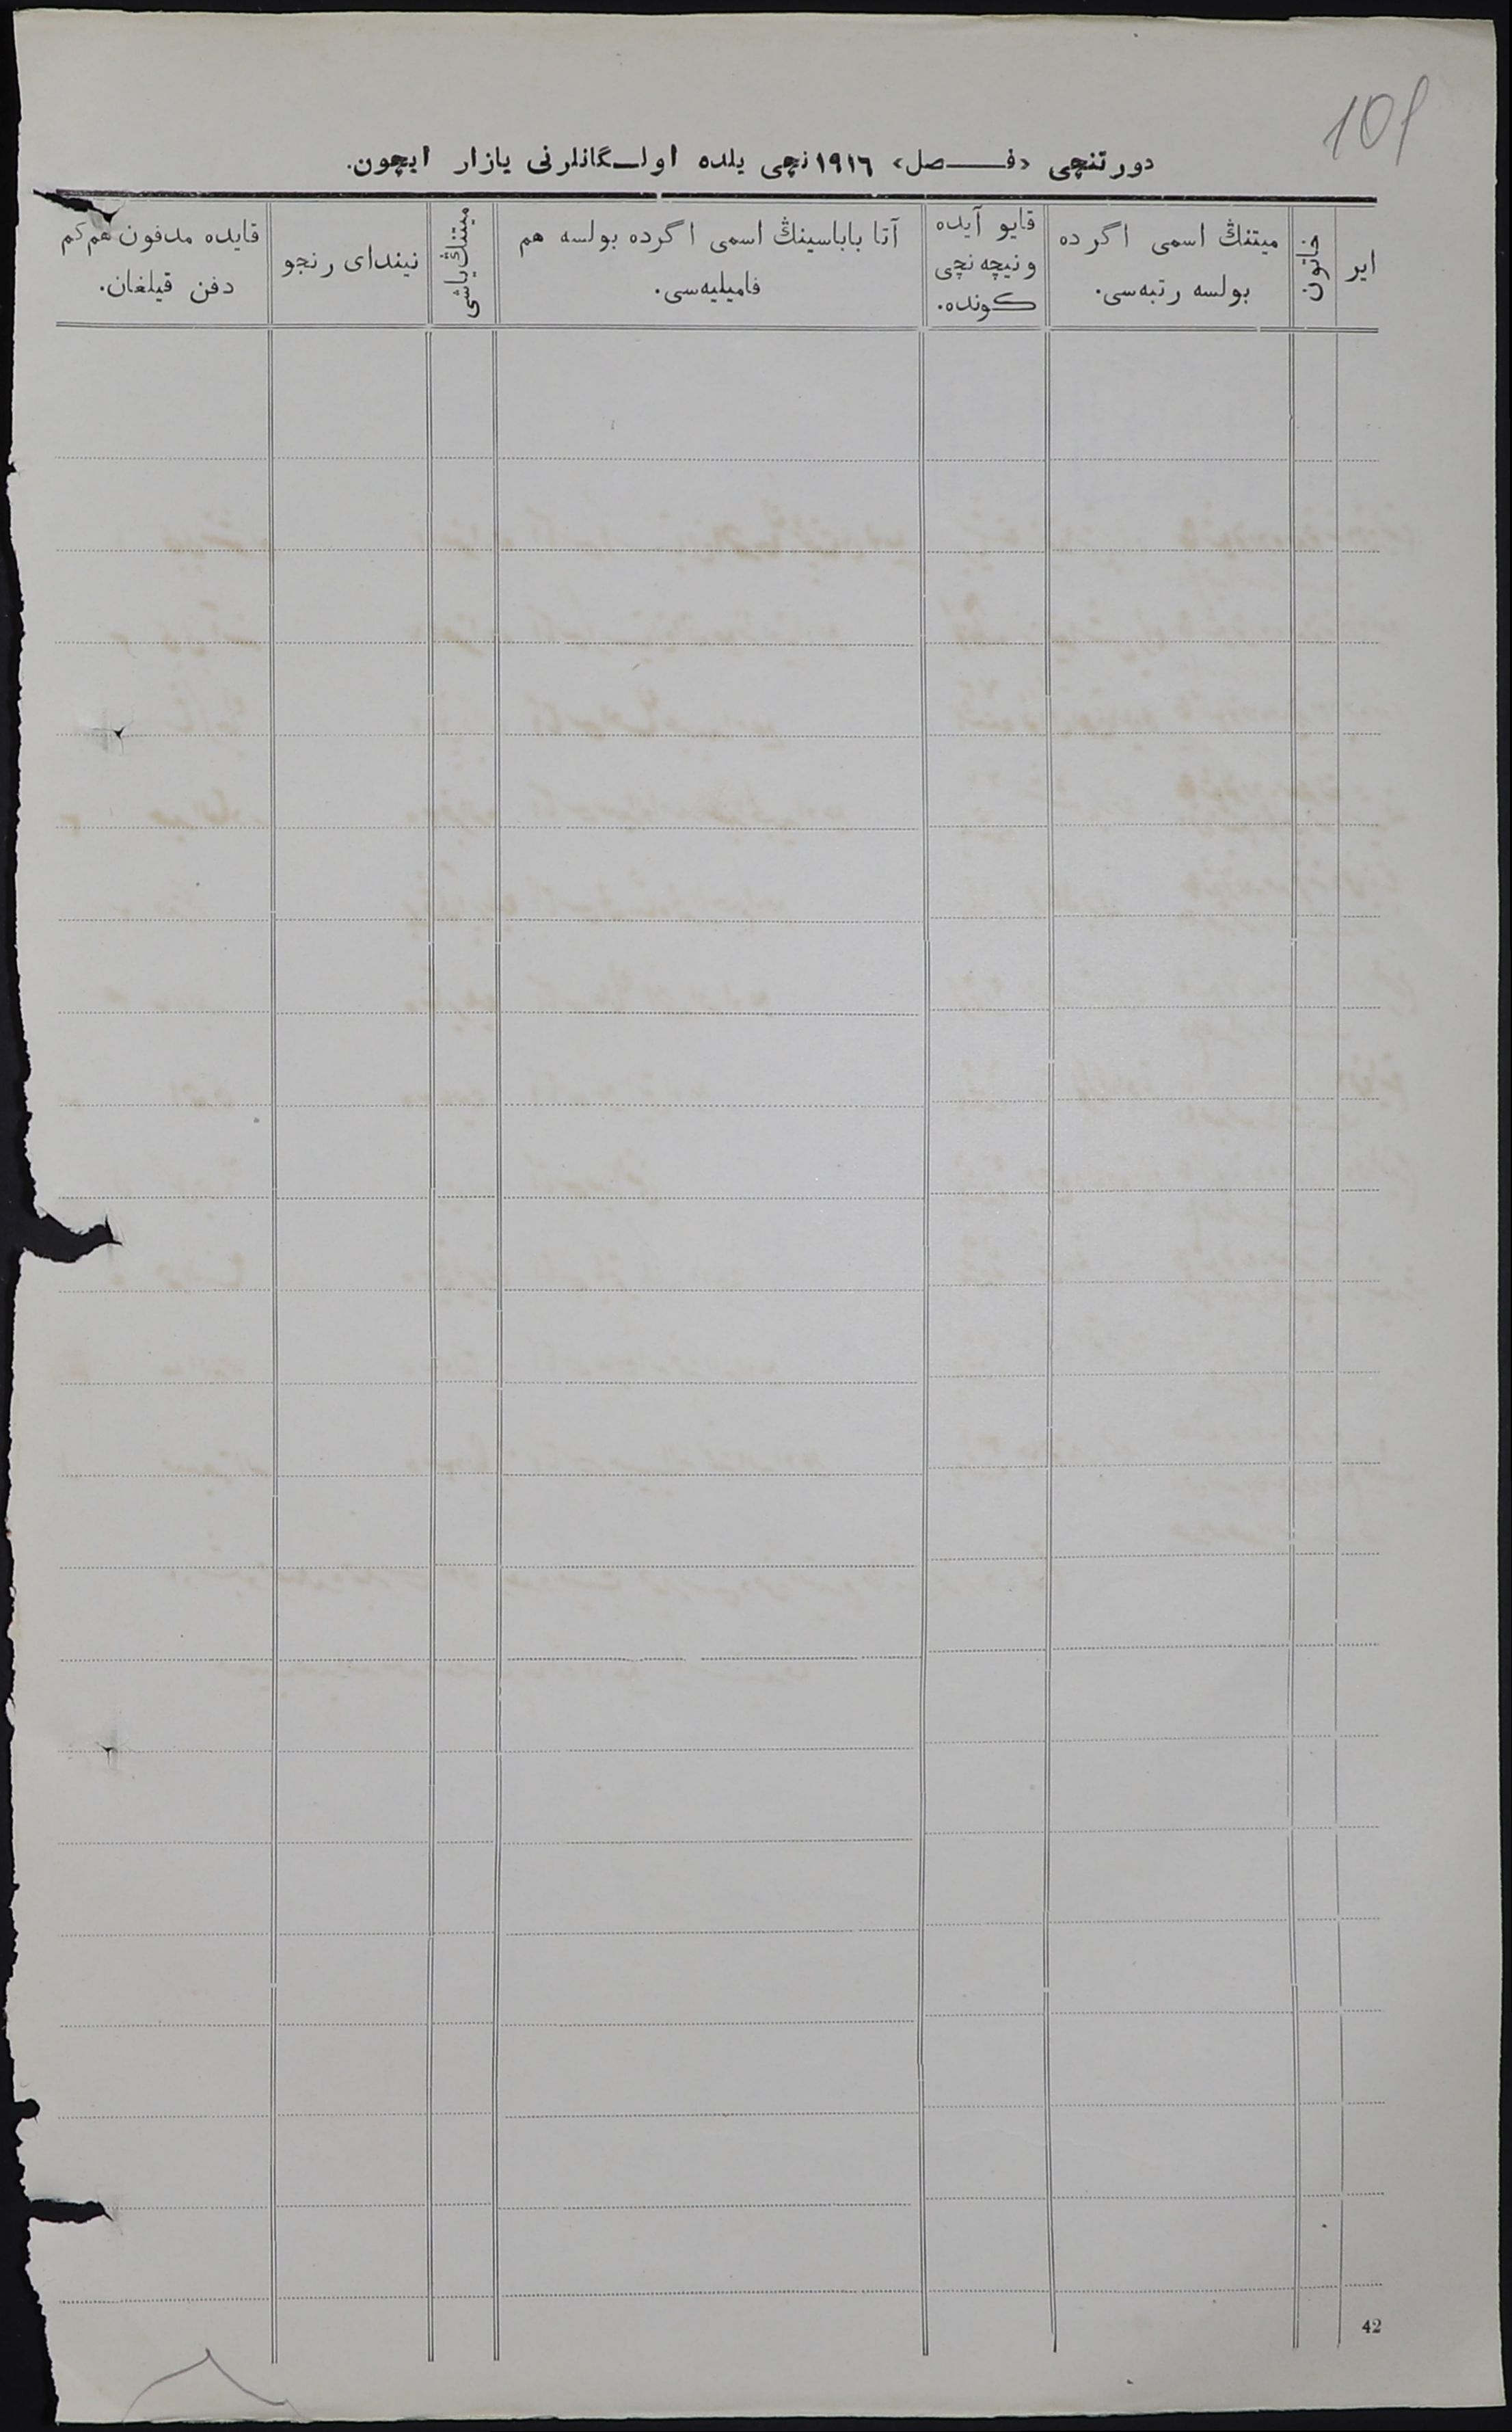 101
دورتنچی «فصل» ١٩١٦نچی یلده اولگانلرنی یازار ایچون.
ایر
خاتون
میتنڭ اسمی اگرده
بولسه رتبه‌سی.
قایو آیده
ونیچه نچی
کونده.
آتا باباسینڭ اسمی اگرده بولسه هم
فامیلیه‌سی.
میتنڭ یاشی
نیندای رنجو
قایده مدفون هم کم
دفن قیلغان.
42